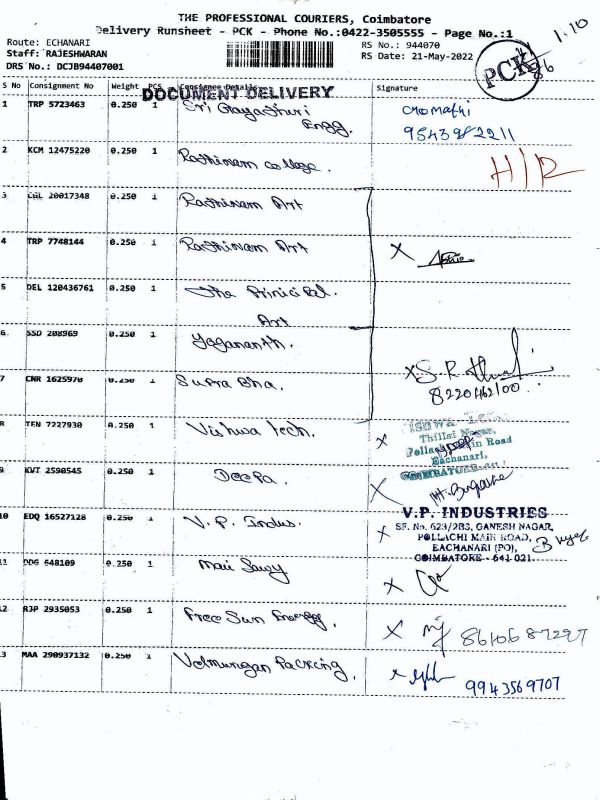 THE PROFESSIONAL COURIERS, Coimbatore
Delivery Runsheet - PCK - Phone No.:0422-3505555 - Page No.:1
1.10
Route: ECHANARI
RS No.: 944070
Staff: RAJESHWARAN
RS Date: 21-May-2022
DRS No.: DCJB94407001
PCK
86
S No Consignment No Weight PCS Consignee Details Signature
DOCUMENT DELIVERY
1 TRP 5723463 0.250 1 Sri
Engg.
9543982211
2 KCM 12475220 0.250 1 Rathinam College.
H/R
3 CGL 20017348 0.250 1 Rathinam Art
4 TRP 7748144 0.250 1 Rathinam Art X
5 DEL 120436761 0.250 1 The
Art
6 SSD 208969 0.250 1 Yogananth.
7 CNR 1625970 0.250 1 Supra Bha. X S. R
8220462100
8 TEN 7227930 0.250 1 Vishwa tech. X
Thillai Nagar,
Eachanari,
9 KVT 2590545 0.250 1 Deepa. X
10 EDQ 16527128 0.250 1 V.P. Indus. X
V.P. INDUSTRIES
SF. No. 623/2B3, GANESH NAGAR,
POLLACHI MAIN ROAD,
EACHANARI (PO),
COIMBATORE - 641 021.
11 DDG 648109 0.250 1 X
12 RJP 2935053 0.250 1 Free Sun Energy. X 8610687297
13 MAA 290937132 0.250 1 Velmurugan Packing. X
9943569707